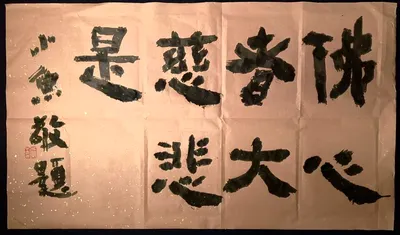 佛心
者大
慈悲
是
小魚敬題